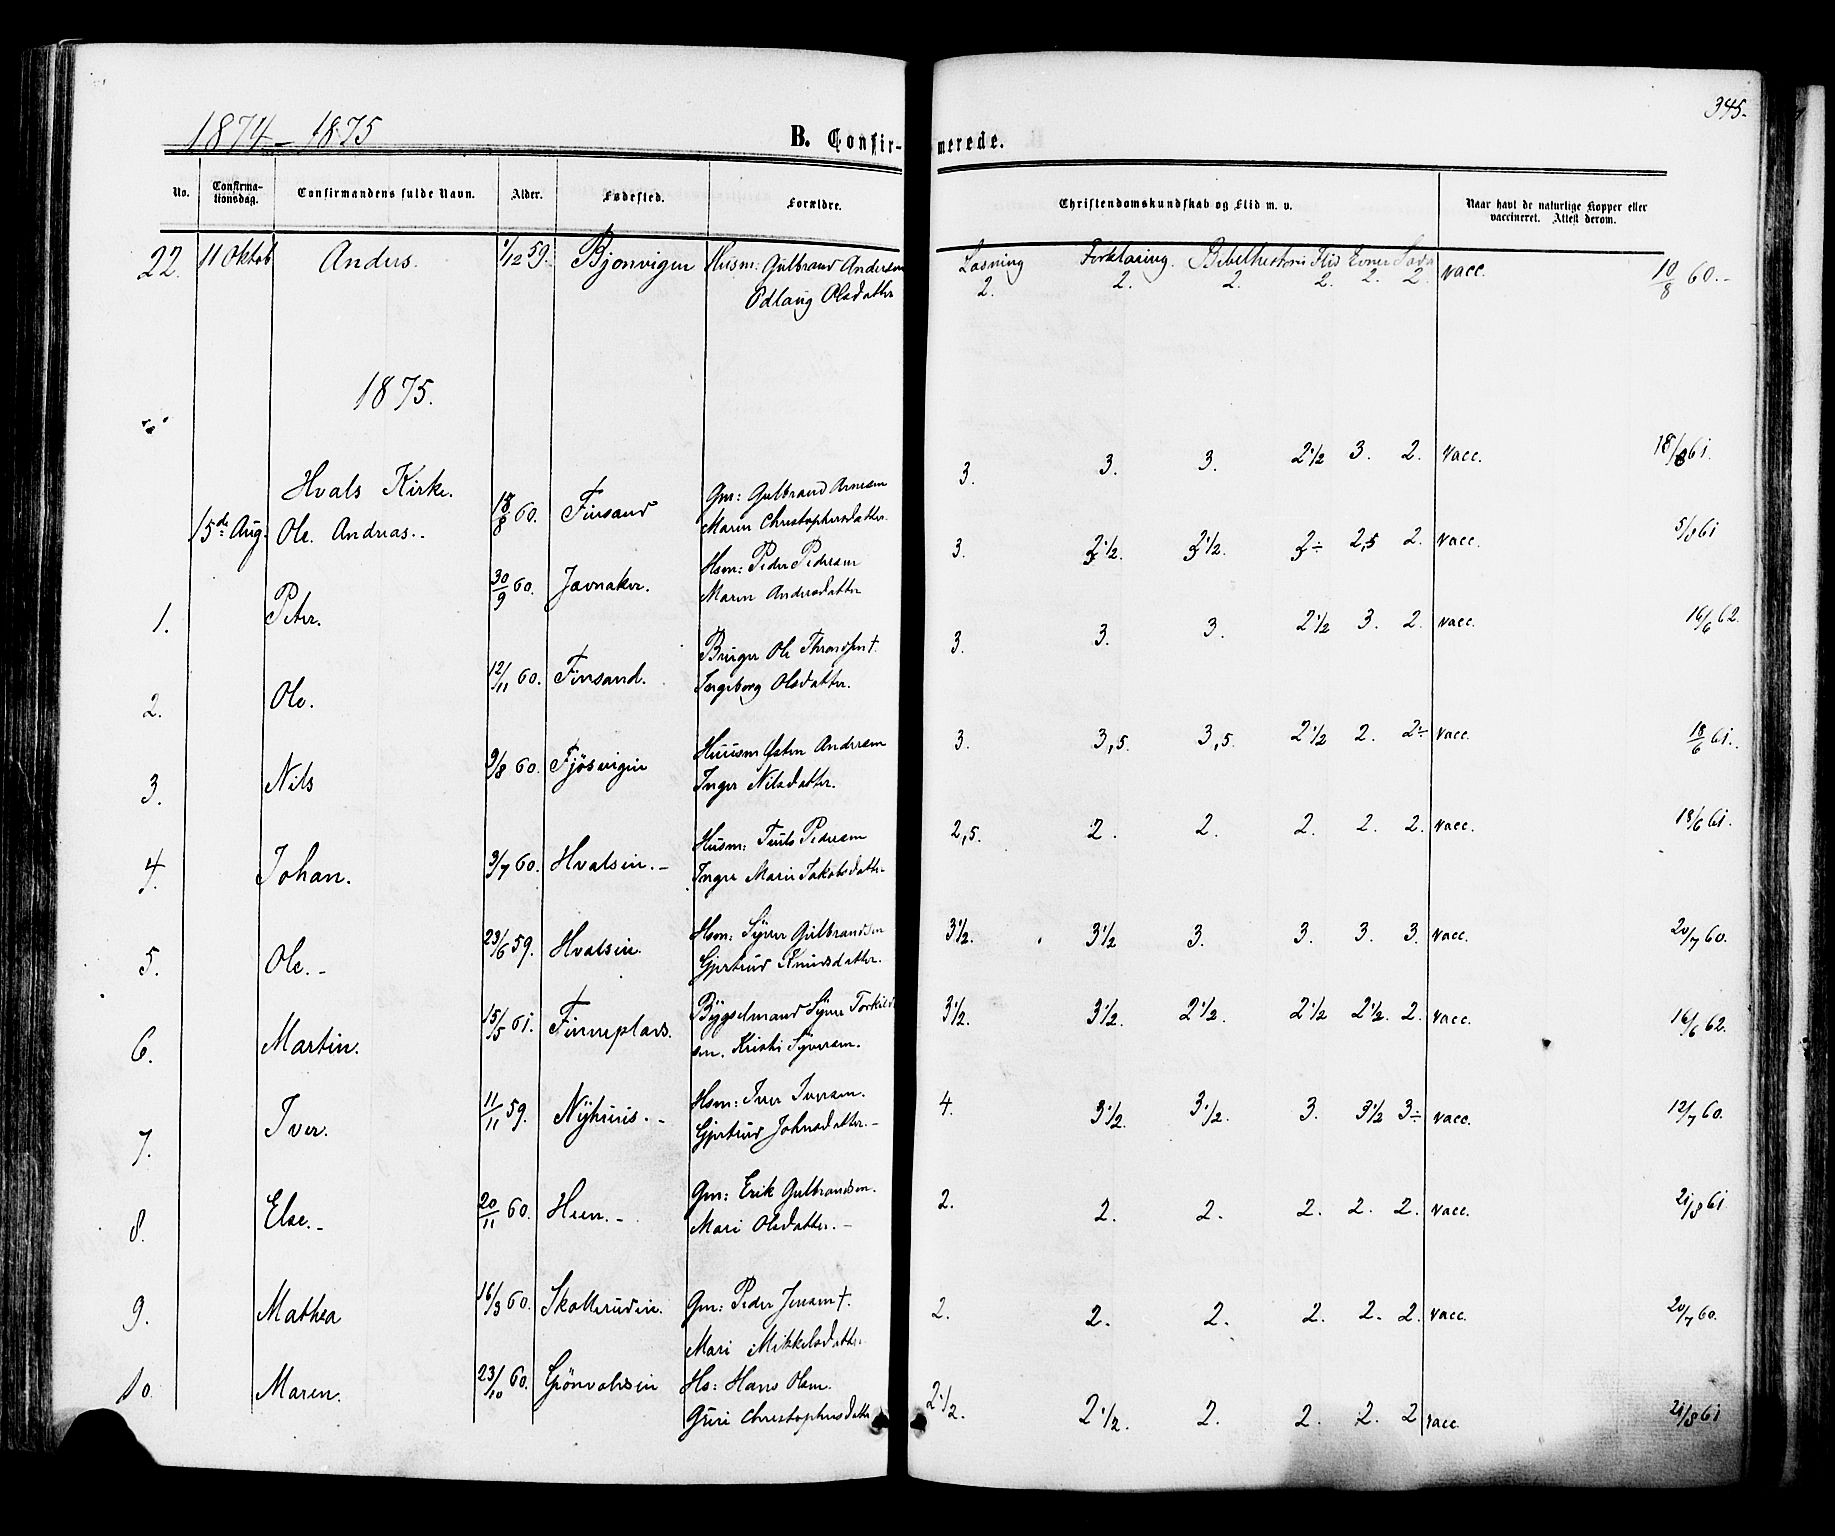 345.
1874 - 1875
B. Confir-
merede.
No.
Confirma-
tionsdag.
Confirmandens fulde Navn.
Alder.
Fødested.
Forældre.
Christendomskundskab og Flid m. v.
Naar havt de naturlige Kopper eller
vaccineret. Attest derom.
Læsning Forklaring. Bibelhistorie Flid Evner
22. 11 Oktob Anders. 1/12 59. Bjonvigen Husm: Gulbrand Andersen
Odlaug Olsdatter
2. 2. 2. 2. 2. 2. vacc. 10/8 60.-
1875.
Hvals Kirke.
15de Aug. Ole Andreas.. 18/8 60. Finsand Gm: Gulbrand Arnesen
Maren Christophersdatter.
3. 3. 3. 2 1/2 3. 2. vacc. 18/8 61.
1. Peter. 30/9 60. Jævnaker. Hsm: Peder Pedersen
Maren Andersdatter
3. 2 1/2. 2 1/2. 2÷ 2,5 2. vacc. 5/8 61
2. Ole. 12/11 60. Finsand. Bruger Ole Thronsen †
Ingeborg Olsdatter.
3. 3. 3. 2 1/2 3. 2. vacc. 16/6 62.
3. Nils 9/8 60. Fjösvigen Huusm Østen Andersen
Inger Nilsdatter.
3. 3,5. 3,5. 2 1/2 2. 2÷ vacc. 18/6 61.
4. Johan. 3/7 60. Hvalsein.- Husm: Truls Pedersen
Inger Marie Jakobsdatter
2,5. 2. 2. 2. 2. 2. vacc. 18/6 61.
5. Ole.- 23/6 59. Hvalsein. Hsm: Syver Gulbrandsen
Gjertrud Knudsdatter.
3 1/2. 3 1/2 3. 3. 3. 3. vacc. 20/7 60.
6. Martin. 15/5 61. Finneplads. Bygselmand Syver Torkild
sen. Kristi Syversen.
3 1/2. 3 1/2. 2 1/2. 2 1/2 2 1/2. 2. vacc. 16/6 62.
7. Iver. 11/11 59. Nyhuus.- Hsm: Iver Iversen.
Gjertrud Johnsdatter.-
4. 3 1/2. 3 1/2. 3. 3 1/2 3÷ vacc. 12/7 60.
8. Else.- 20/11 60. Heen.- Gm: Erik Gulbrandsen.
Mari Olsdatter.-
2. 2. 2. 2. 2. 2. vacc. 21/8 61.
9. Mathea 16/3 60. Skollerudein. Gm: Peder Jensen †.
Mari Mikkelsdatter
2. 2. 2. 2. 2. 2. vacc. 20/7 60.
10. Maren. 23/10 60. Grönvoldsein Hs: Hans Olsen.
Guri Christophersdatter
2 1/2. 2 1/2. 2. 2. 2. 2 vacc. 21/8 61